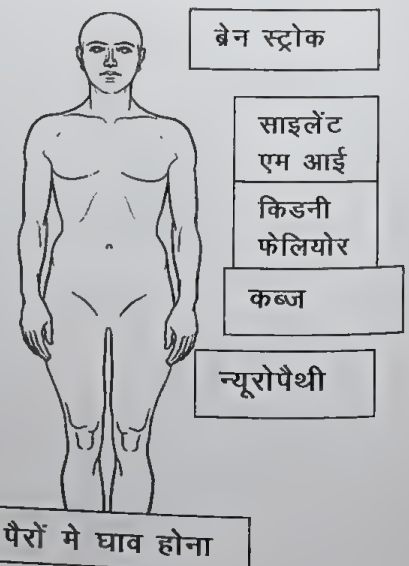 ब्रेन स्ट्रोक
साइलेंट
एम आई
किडनी
फेलियोर
कब्ज
न्यूरोपैथी
पैरों मे घाव होना